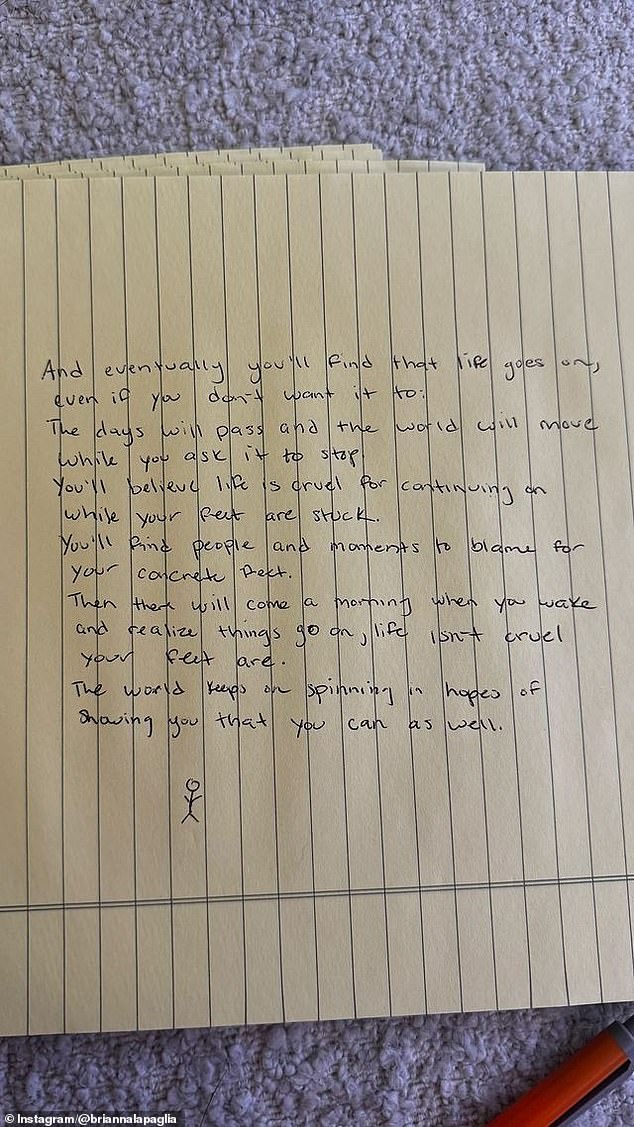 And eventually you'll find that life goes on,
even if you don't want it to.
The days will pass and the world will move
while you ask it to stop.
You'll believe life is cruel for continuing on
while your feet are stuck.
You'll find people and moments to blame for
your concrete feet.
Then there will come a morning when you wake
and realize things go on, life isn't cruel
your feet are.
The world keeps on spinning in hopes of
showing you that you can as well.
© Instagram/@briannalapaglia